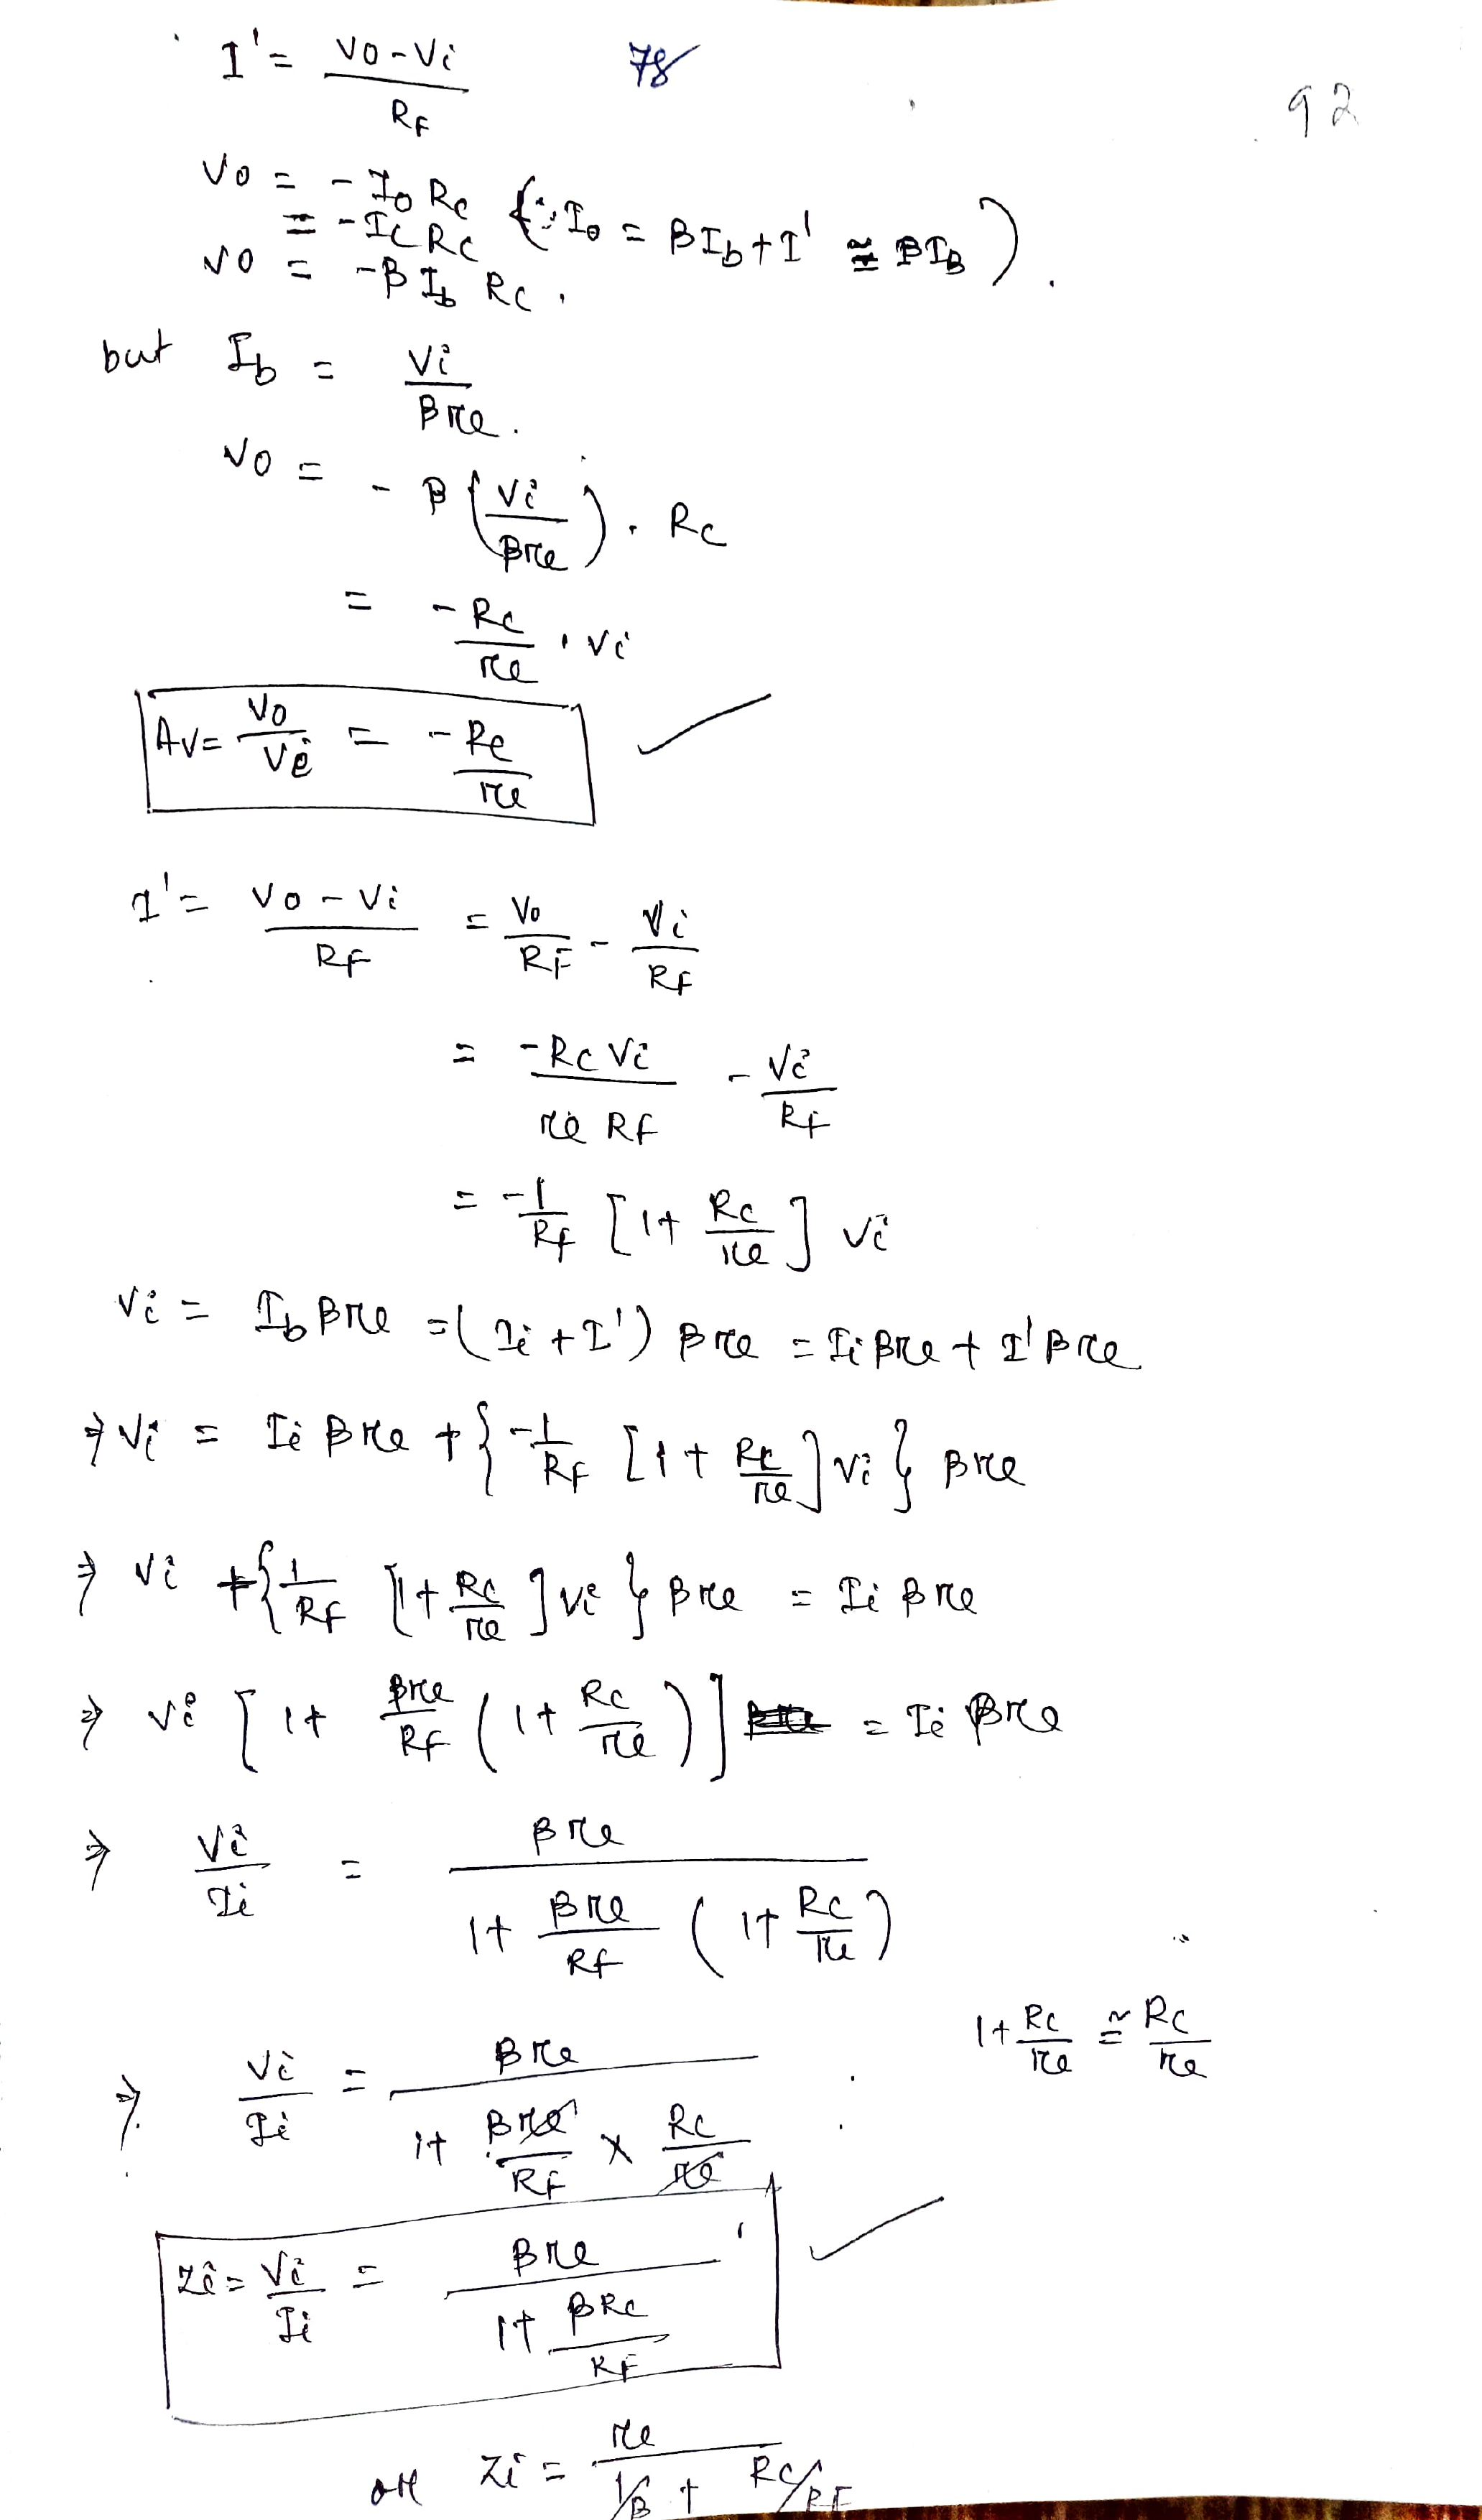 I' = (Vo - Vi) / RF
78
92
Vo = - Io Rc {∵ Io = βIb + I' ≅ βIB)
= - Ic Rc
Vo = - β Ib Rc.
but Ib = Vi / βre.
Vo = - β (Vi / βre) . Rc
= - Rc / re . Vi
Av = Vo / Vi = - Rc / re ✓
I' = (Vo - Vi) / RF = Vo / RF - Vi / RF
= - Rc Vi / re RF - Vi / RF
= -1 / RF [1 + Rc / re] Vi
Vi = Ib βre = (Ii + I') βre = Ii βre + I' βre
⇒ Vi = Ii βre + {-1 / RF [1 + Rc / re] Vi} βre
⇒ Vi + {1 / RF [1 + Rc / re] Vi} βre = Ii βre
⇒ Vi [1 + βre / RF (1 + Rc / re)] = Ii βre
⇒ Vi / Ii = βre / (1 + βre / RF (1 + Rc / re))
1 + Rc / re ≅ Rc / re
⇒ Vi / Ii = βre / (1 + βre / RF × Rc / re)
Zi = Vi / Ii = βre / (1 + βRc / RF) ✓
or Zi = re / (1/β + Rc/RF)